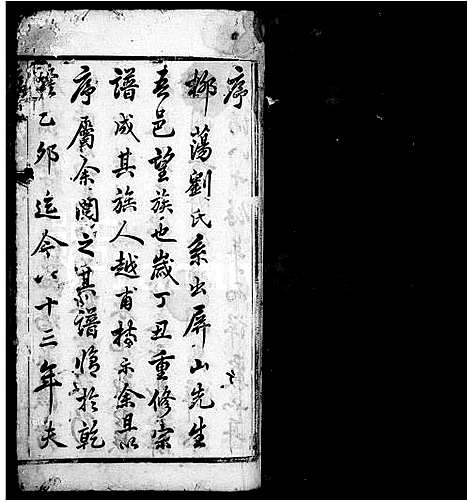 序
柳蕩劉氏系出屏山先生
吾邑望族也歲丁丑重修宗
譜成其族人越甫持示余且以
序屬余閱之其譜脩於乾
隆乙卯迄今八十三年夫